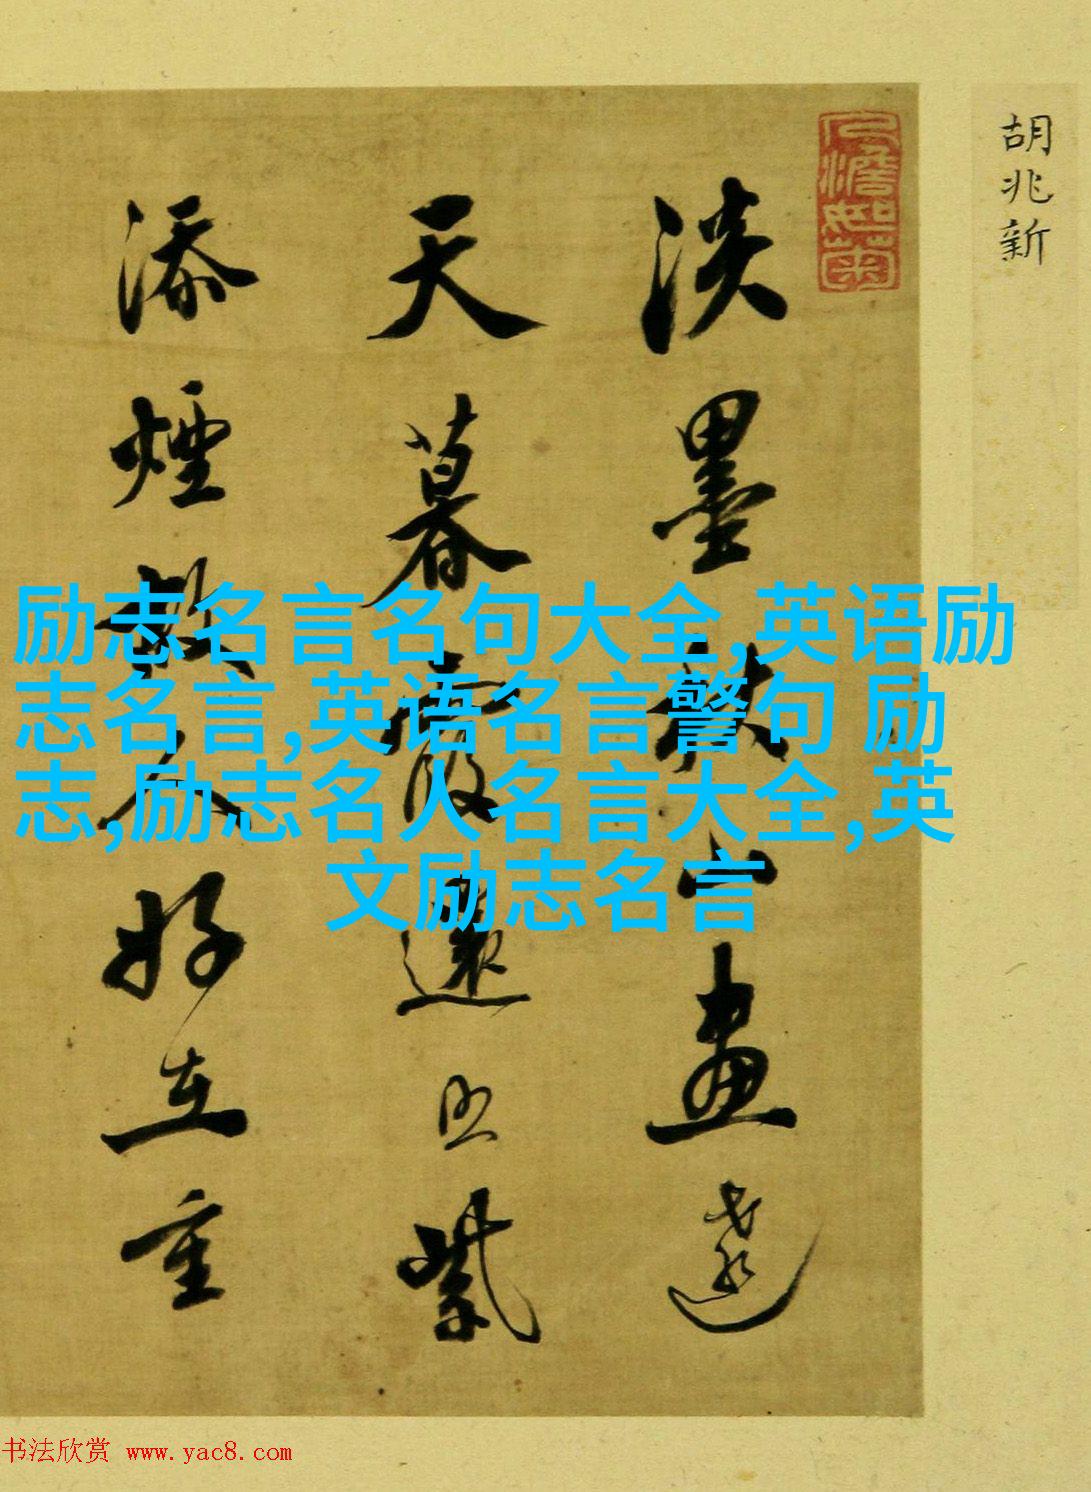 胡兆新
人澹如菊
淡墨秋山畫遠
天暮霞還照紫
添煙故人好在重
励志名言名句大全,英语励
志名言,英语名言警句 励
志,励志名人名言大全,英
文励志名言
书法欣赏 www.yac8.com